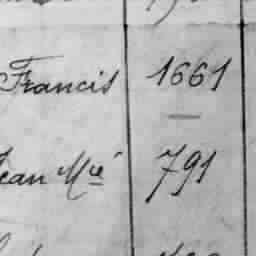 Francis 1661
Jean Mié 791